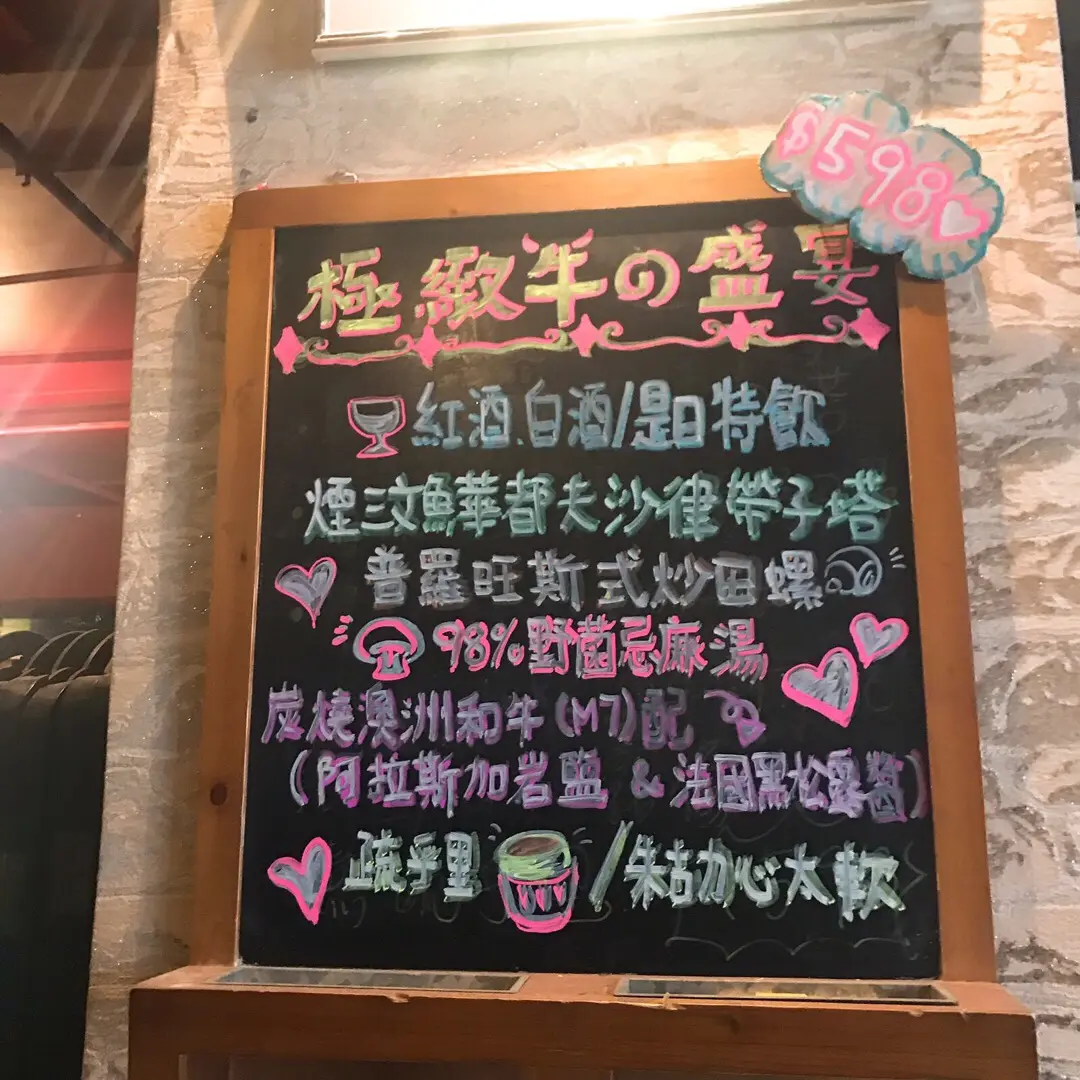 $598
極緻牛の盛宴
紅酒.白酒/是日特飲
煙三文魚華都夫沙律帶子塔
普羅旺斯式炒田螺
98%野菌忌廉湯
炭燒澳洲和牛(M7)配
(阿拉斯加岩鹽 & 法國黑松露醬)
疏乎里 / 朱古力心太軟